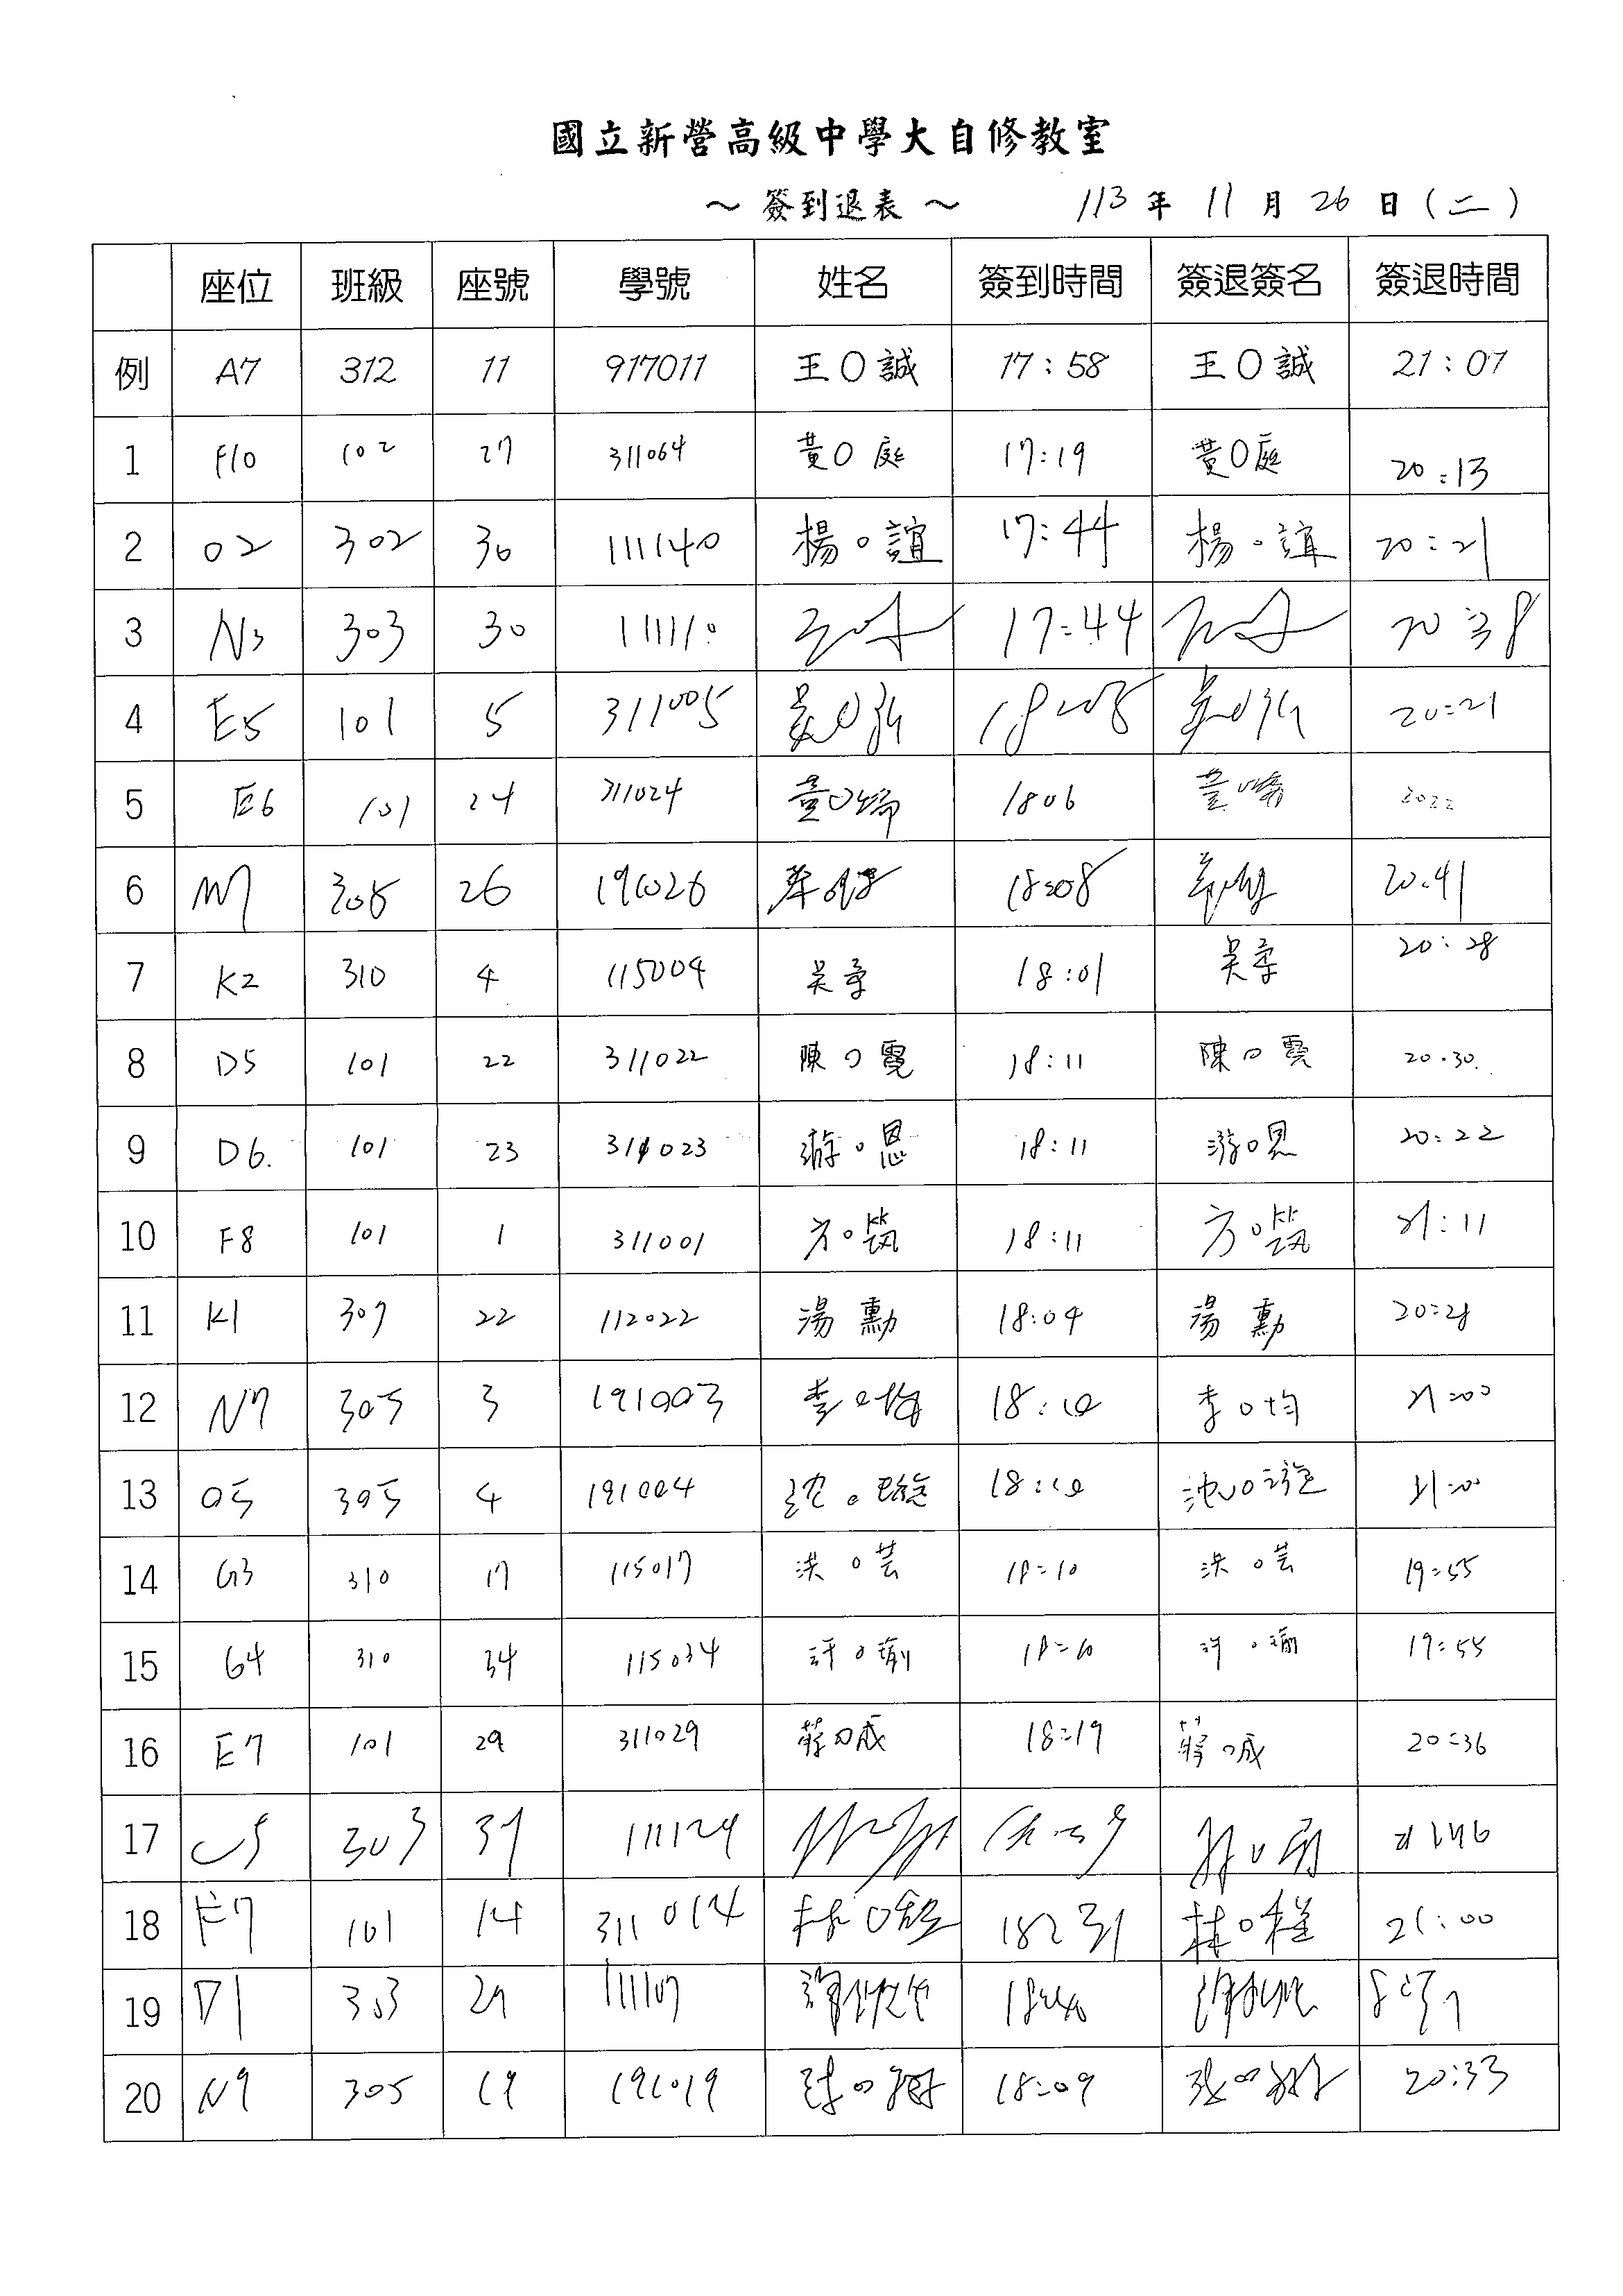 國立新營高級中學大自修教室
～ 簽到退表 ～ 113 年 11 月 26 日 (二)
座位 班級 座號 學號 姓名 簽到時間 簽退簽名 簽退時間
例 A7 312 11 917011 王O誠 17:58 王O誠 21:07
1 F10 102 27 311064 黃O庭 17:19 黃O庭 20:13
2 O2 302 30 111140 楊O誼 17:44 楊O誼 20:21
3 N3 303 30 111110 17:44 20:38
4 E5 101 5 311005 18:08 20:21
5 E6 101 24 311024 1806 2022
6 305 26 191026 18:08 20:41
7 K2 310 4 115004 吳 18:01 吳 20:28
8 D5 101 22 311022 陳O霓 18:11 陳O霓 20:30
9 D6 101 23 311023 游O恩 18:11 游O恩 20:22
10 F8 101 1 311001 方O筑 18:11 方O筑 21:11
11 K1 307 22 112022 湯 勳 18:04 湯 勳 20:28
12 N7 305 3 191003 李O均 18:10 李O均 21:00
13 O5 305 4 191004 沈O璇 18:10 21:00
14 G3 310 17 115017 洪O芸 18:10 洪O芸 19:55
15 G4 310 34 115034 許O瑜 18:10 許O瑜 19:55
16 E7 101 29 311029 蔣O宬 18:19 蔣O宬 20:36
17 303 37 111124
18 101 14 311014 林O 1823 林O 21:00
19 D1 303 29 111107 謝 18:40 謝
20 N9 305 19 191019 張O 18:09 張O 20:33